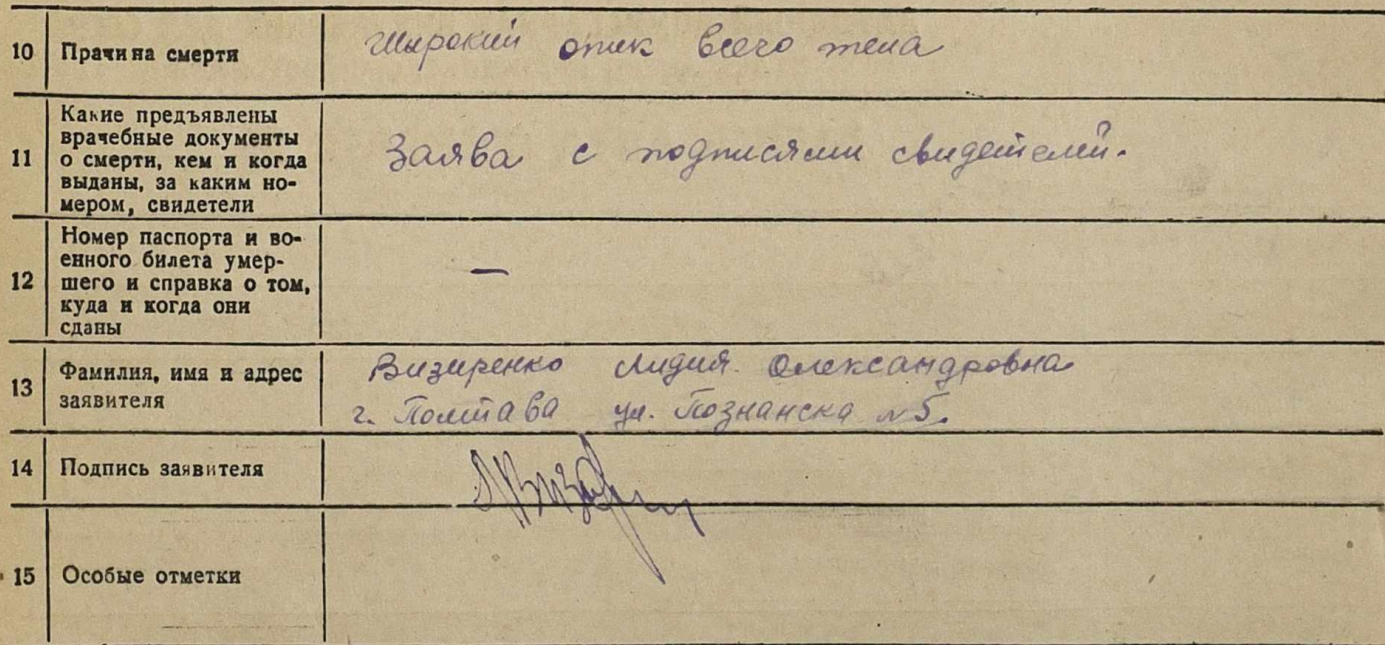 10 Прачина смерти Широкий опик всего тела
11 Какие предъявлены
врачебные документы
о смерти, кем и когда
выданы, за каким но-
мером, свидетели
Заява с подписями свидетелей.
12 Номер паспорта и во-
енного билета умер-
шего и справка о том,
куда и когда они
сданы
—
13 Фамилия, имя и адрес
заявителя
Визиренко Лидия Олександровна
г. Полтава ул. Познанска №5.
14 Подпись заявителя
15 Особые отметки